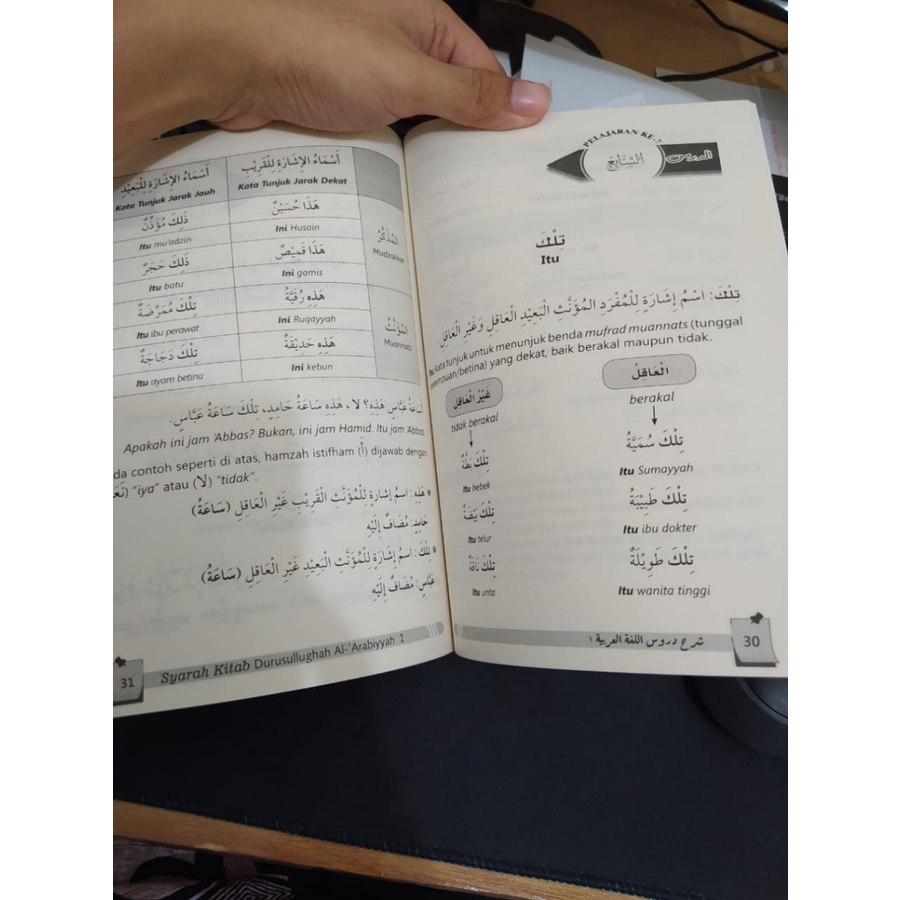 PELAJARAN KE-7
الدرس
السَّابِعُ
تِلْكَ
Itu
تِلْكَ: اسْمُ إِشَارَةٍ لِلْمُفْرَدِ المُؤَنَّثِ البَعِيْدِ العَاقِلِ وَغَيْرِ العَاقِلِ.
Itu kata tunjuk untuk menunjuk benda mufrad muannats (tunggal
perempuan/betina) yang dekat, baik berakal maupun tidak.
الْعَاقِلُ
berakal
تِلْكَ سُمَيَّةُ
Itu Sumayyah
تِلْكَ طَبِيْبَةٌ
Itu ibu dokter
تِلْكَ طَوِيْلَةٌ
Itu wanita tinggi
غَيْرُ العَاقِلِ
tidak berakal
تِلْكَ بَطَّةٌ
Itu bebek
تِلْكَ بَيْضَةٌ
Itu telur
تِلْكَ نَاقَةٌ
Itu unta
شرح دروس اللغة العربية ١
30
أَسْمَاءُ الإِشَارَةِ لِلْقَرِيْبِ
Kata Tunjuk Jarak Dekat
أَسْمَاءُ الإِشَارَةِ لِلْبَعِيْدِ
Kata Tunjuk Jarak Jauh
المُذَكَّرُ
Mudzakkar
هَذَا حُسَيْنٌ
Ini Husain
ذَلِكَ مُؤَذِّنٌ
Itu mu'adzin
هَذَا قَمِيْصٌ
Ini gamis
ذَلِكَ حَجَرٌ
Itu batu
المُؤَنَّثُ
Muannats
هَذِهِ رُقَيَّةُ
Ini Ruqayyah
تِلْكَ مُمَرِّضَةٌ
Itu ibu perawat
هَذِهِ حَدِيْقَةٌ
Ini kebun
تِلْكَ دَجَاجَةٌ
Itu ayam betina
عَبَّاسٍ هَذِهِ؟ لَا، هَذِهِ سَاعَةُ حَامِدٍ، تِلْكَ سَاعَةُ عَبَّاسٍ.
Apakah ini jam 'Abbas? Bukan, ini jam Hamid. Itu jam 'Abbas
contoh seperti di atas, hamzah istifham (أَ) dijawab dengan
"iya" atau (لَا) "tidak".
* هَذِهِ: اسْمُ إِشَارَةٍ لِلْمُؤَنَّثِ الْقَرِيْبِ غَيْرِ الْعَاقِلِ (سَاعَةُ)
حَامِدٍ: مُضَافٌ إِلَيْهِ
* تِلْكَ: اسْمُ إِشَارَةٍ لِلْمُؤَنَّثِ الْبَعِيْدِ غَيْرِ الْعَاقِلِ (سَاعَةُ)
عَبَّاسٍ: مُضَافٌ إِلَيْهِ
Syarah Kitab Durusullughah Al-'Arabiyyah 1
31